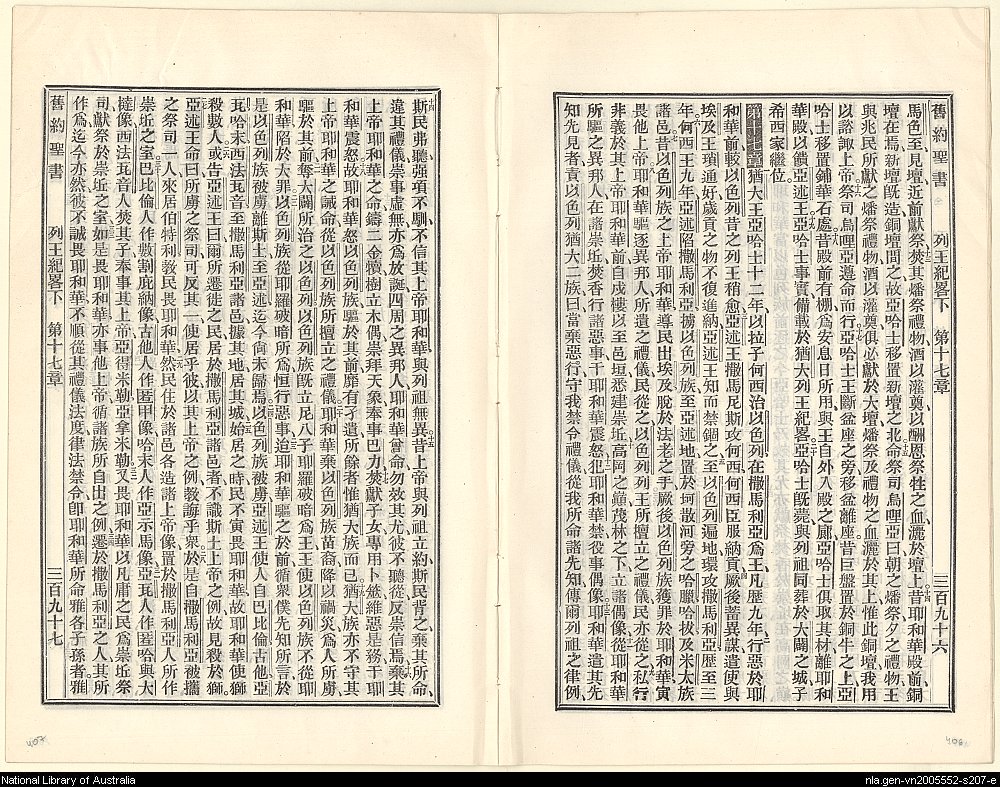 舊約聖書 列王紀畧下 第十七章 三百九十六
馬色至見壇近前獻祭焚其燔祭禮物酒以灌奠以酬恩祭牲之血灑於壇上昔耶和華殿前銅
壇在焉新壇旣造銅壇間之故亞哈士移置新壇之北命祭司烏哩亞曰朝之燔祭夕之禮物王
與兆民所獻之燔祭禮物酒以灌奠俱必獻於大壇燔祭及禮物之血灑於其上惟此銅壇我用
以諮諏上帝祭司烏哩亞遵命而行亞哈士王斷盆座之旁移盆離座昔巨盤置於銅牛之上亞
哈士移置鋪華石處昔殿前有棚爲安息日所用與王自外入殿之廊亞哈士俱取其材離耶和
華殿以饋亞述王亞哈士事實備載於猶大列王紀畧亞哈士旣薨與列祖同葬於大闢之城子
希西家繼位
第十七章猶大王亞哈士十二年以拉子何西治以色列在撒馬利亞爲王凡歷九年行惡於耶
和華前較以色列昔之列王稍愈亞述王撒馬尼斯攻何西何西臣服納貢厥後蓄異謀遣使與
埃及王瑣通好歲貢之物不復進納亞述王知而禁錮之至以色列遍地環攻撒馬利亞歷至三
年何西王九年亞述陷撒馬利亞擄以色列族至亞述地置於坷散河旁之哈臘哈拔及米太族
諸邑昔以色列族之上帝耶和華導民出埃及脫於法老之手厥後以色列族獲罪於耶和華寅
畏他上帝耶和華驅逐異邦人所遺之禮儀民從之以色列王所擅立之禮儀民亦從之私行
非義於其上帝耶和華前自戍樓以至邑垣悉建崇坵高岡之巔茂林之下立諸偶像從耶和華
所驅之異邦人在諸崇坵焚香行諸惡事干耶和華震怒犯耶和華禁役事偶像耶和華遣其先
知先見者責以色列猶大二族曰當棄惡行守我禁令禮儀從我所命諸先知傳爾列祖之律例
斯民弗聽强項不馴不信其上帝耶和華與列祖無異昔上帝與列祖立約斯民背之棄其所命
違其禮儀崇事虛無亦爲放誕四周之異邦人耶和華曾命勿效其尤彼不聽從反崇信焉棄其
上帝耶和華之命鑄二金犢樹立木偶崇拜天象奉事巴力焚獻子女專用卜筮維惡是務干耶
和華震怒故耶和華怒以色列族驅於其前靡有孑遺所餘者惟猶大族而已猶大族亦不守其
上帝耶和華之誡命從以色列族所擅立之禮儀耶和華棄以色列族苗裔降以禍災爲人所虜
驅於其前奪大闢所治之以色列以色列族旣立尼八子耶羅破暗爲王王使以色列族不從耶
和華陷於大罪以色列族從耶羅破暗所爲恒行惡事迨耶和華驅之於前循衆僕先知所言於
是以色列族被虜離斯土至亞述迄今尙未歸焉以色列族被虜亞述王使人自巴比倫古他亞
瓦哈末西法瓦音至撒馬利亞諸邑據其地居其城始居之時民不寅畏耶和華故耶和華使獅
殺數人或告亞述王曰爾所遷徙之民居於撒馬利亞諸邑者不識斯土上帝之例故見殺於獅
亞述王命曰所虜之祭司可反其一使居乎彼以其上帝之例教誨乎衆於是自撒馬利亞被擄
之祭司一人來居伯特利教民畏耶和華然民住於諸邑各造諸上帝像置於撒馬利亞人所作
崇坵之室巴比倫人作作數割庇納像古他人作匿甲像哈末人作亞示馬像亞瓦人作匿哈與大
撻像西法瓦音人焚其子奉事其上帝亞得米勒亞拿米勒又畏耶和華以凡庸之民爲崇坵祭
司獻祭於崇坵之室如是畏耶和華亦事他上帝循諸族所自出之例遷於撒馬利亞之人其所
作爲迄今亦然彼不誠畏耶和華不順從其禮儀法度律法禁令卽耶和華所命雅各子孫者雅
舊約聖書 列王紀畧下 第十七章 三百九十七
407
406
National Library of Australia
nla.gen-vn2005552-s207-e